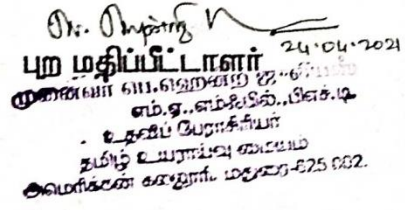 24.04.2021
புற மதிப்பீட்டாளர்
முனைவர் பெ.
எம்.ஏ.,எம்ஃபில்.,பிஎச்.டி
உதவிப் பேராசிரியர்
தமிழ் உயராய்வு மையம்
அமெரிக்கன் கல்லூரி, மதுரை-625 002.